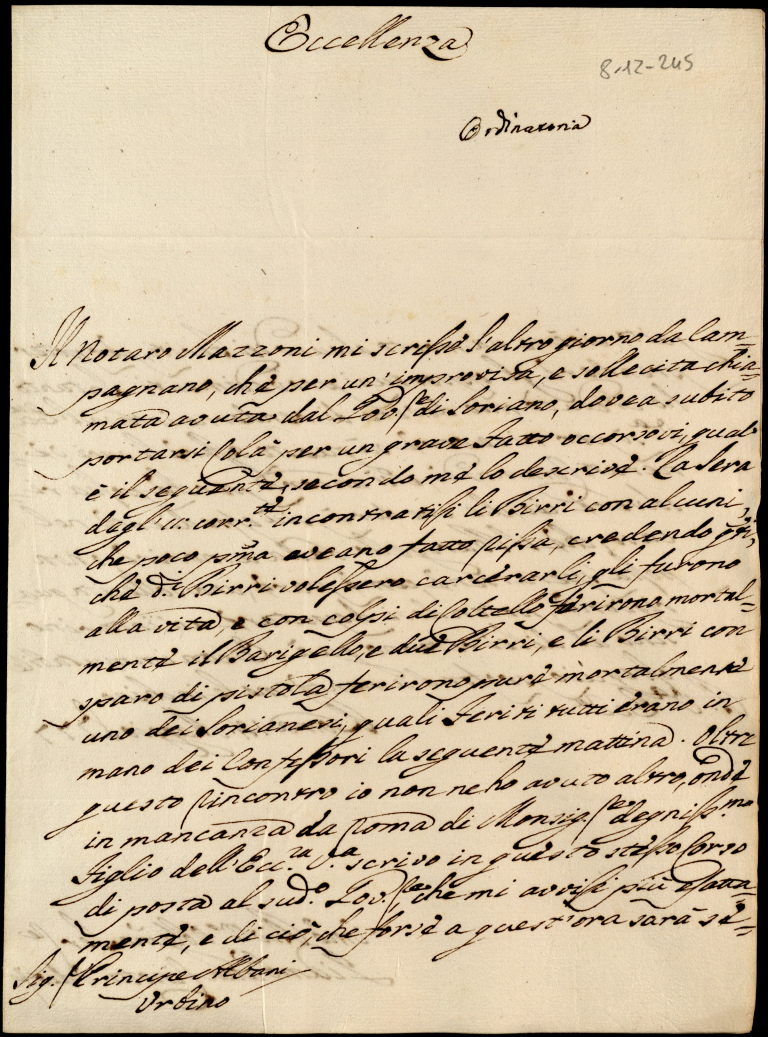 Eccellenza
8-12-245
Ordinatoria
Il Notaro Mazzoni mi scrisse l'altro giorno da Cam=
pagnano, che per un' improvisa, e sollecita chia=
mata avuta dal Gov.re di Soriano, dovea subito
portarsi colà per un grave fatto occorsovi, qual'
è il seguente, secondo me lo descrive. La sera
degl' 11: corr.te incontratisi li Birri con alcuni,
che poco pma aveano fatto rissa, credendo qsti,
che d.i Birri volessero carcerarli, gli furono
alla vita, e con colpi di coltello ferirono mortal=
mente il Barigello, e due Birri, e li Birri con
sparo di pistola ferirono pure mortalmente
uno dei Sorianesi, quali feriti tutti erano in
mano dei Confessori la seguente mattina. Oltre
questo rincontro io non ne ho avuto altro, onde
in mancanza da Roma di Monsig.re degniss.mo
Figlio dell' Ecc.za V.a scrivo in questo stesso corso
di posta al sud.o Gov.re, che mi avvisi più esatta=
mente, e di ciò, che forse a quest' ora sarà se=
Sig.r Principe Albani
Urbino